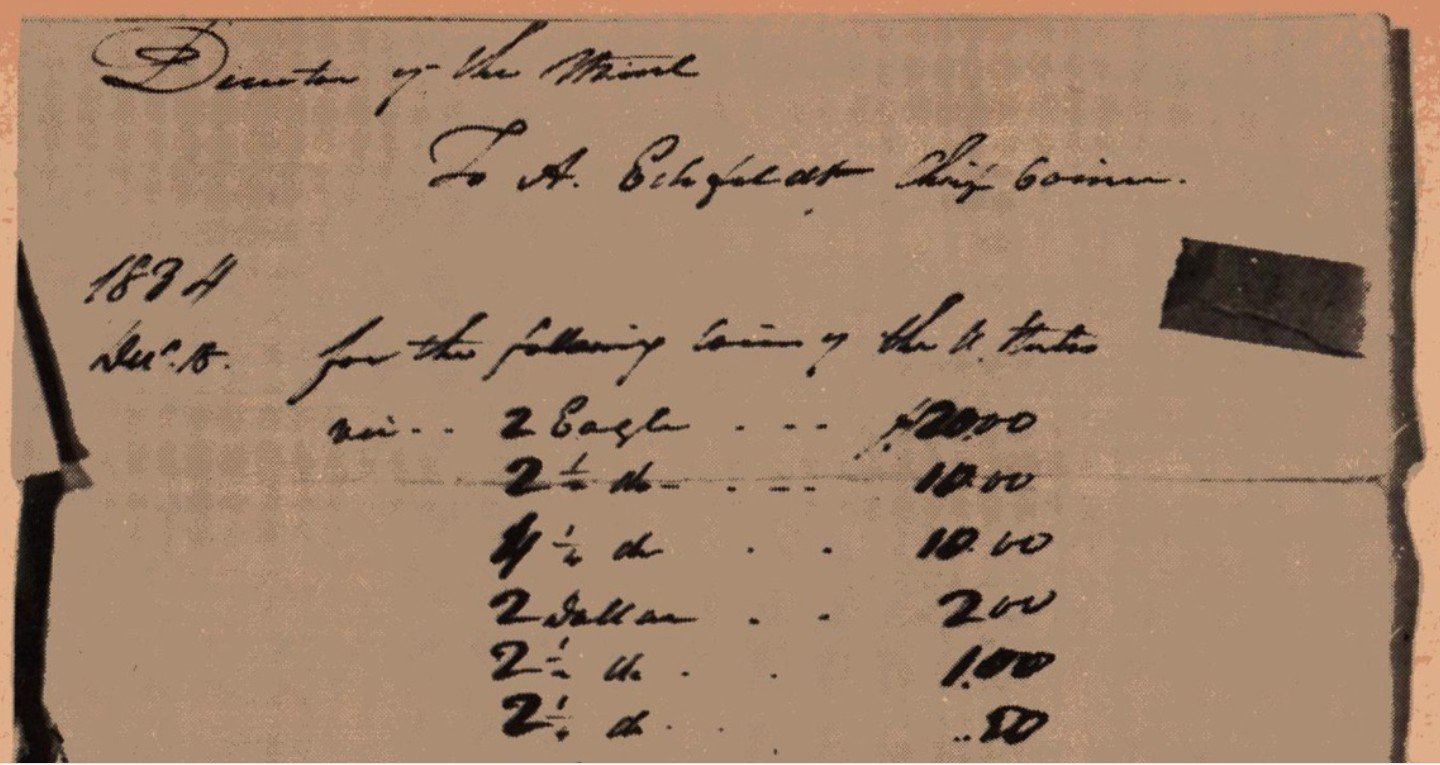 Director of the Mint
To A. Eckfeldt Chief Coiner.
1834
Decr. 18. for the following Coins of the U. States
viz.. 2 Eagle .... $20.00
2 ½ do - .... 10.00
4 ¼ do . . 10.00
2 Dollar . . 2.00
2 ½ do . . 1.00
2 ¼ do . . .. 50